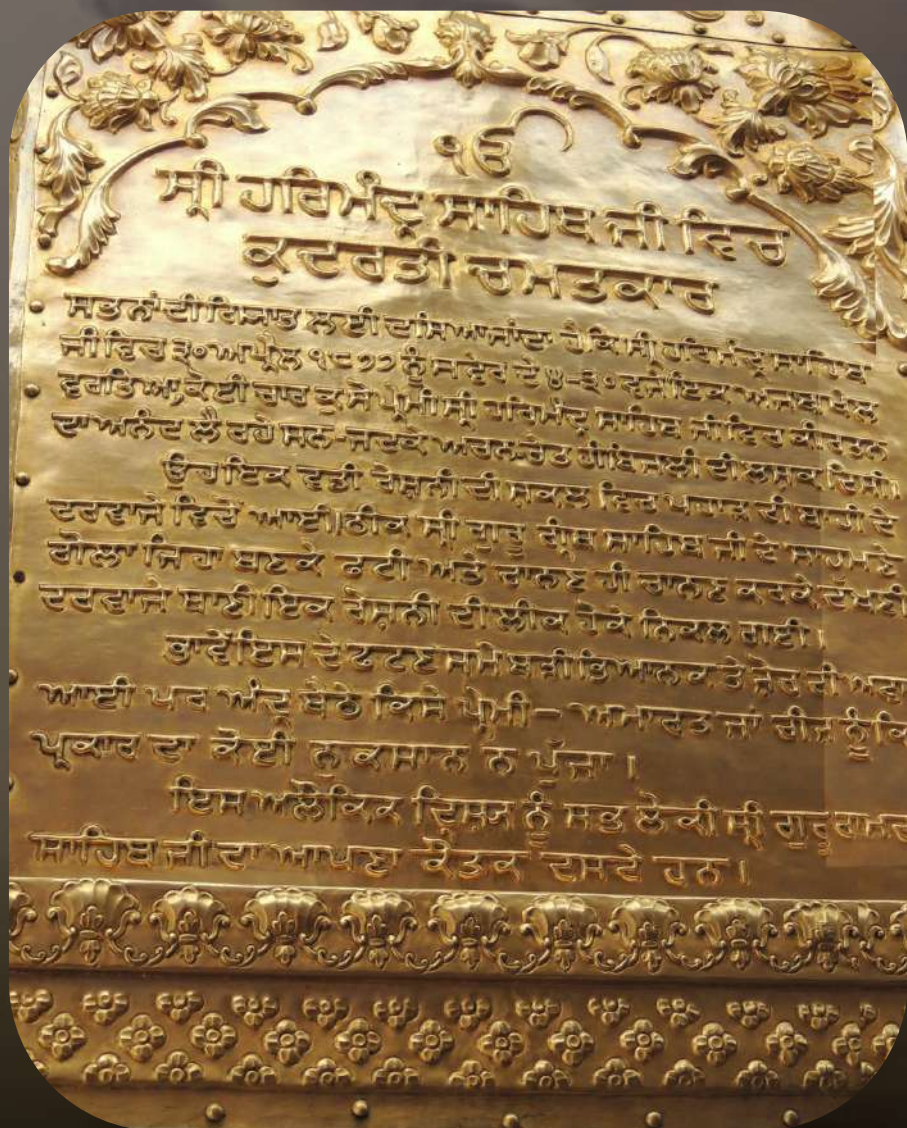 ੴ
ਸ੍ਰੀ ਹਰਿਮੰਦ੍ਰ ਸਾਹਿਬ ਜੀ ਵਿਚ
ਕੁਦਰਤੀ ਚਮਤਕਾਰ
ਸਭਨਾਂ ਦੀ ਗਿਆਤ ਲਈ ਦਸਿਆ ਜਾਂਦਾ ਹੈ ਕਿ ਸ੍ਰੀ ਹਰਿਮੰਦ੍ਰ ਸਾਹਿਬ
ਜੀ ਵਿਚ ੩੦ ਅਪ੍ਰੈਲ ੧੮੭੭ ਨੂੰ ਸਵੇਰ ਦੇ ੪-੩੦ ਵਜੇ ਇਕ ਅਜਬ ਖੇਲ
ਵਰਤਿਆ, ਕੋਈ ਚਾਰ ਕੁ ਸੌ ਪ੍ਰੇਮੀ ਸ੍ਰੀ ਹਰਿਮੰਦ੍ਰ ਸਾਹਿਬ ਜੀ ਵਿਚ ਕੀਰਤਨ
ਦਾ ਅਨੰਦ ਲੈ ਰਹੇ ਸਨ-ਜਦਕੇ ਅਚਨਚੇਤ ਹੀ ਬਿਜਲੀ ਦੀ ਲਸ਼ਕ ਦਿਸੀ।
ਉਹ ਇਕ ਵਡੀ ਰੋਸ਼ਨੀ ਦੀ ਸ਼ਕਲ ਵਿਚ ਪਹਾੜ ਦੀ ਬਾਹੀ ਦੇ
ਦਰਵਾਜੇ ਵਿਚੋਂ ਆਈ।ਠੀਕ ਸ੍ਰੀ ਗੁਰੂ ਗ੍ਰੰਥ ਸਾਹਿਬ ਜੀ ਦੇ ਸਾਹਮਣੇ
ਗੋਲਾ ਜਿਹਾ ਬਣਕੇ ਫਟੀ ਅਤੇ ਚਾਨਣ ਹੀ ਚਾਨਣ ਕਰਕੇ ਦੱਖਣੀ
ਦਰਵਾਜੇ ਥਾਣੀ ਇਕ ਰੋਸ਼ਨੀ ਦੀ ਲੀਕ ਹੋਕੇ ਨਿਕਲ ਗਈ।
ਭਾਵੇਂ ਇਸ ਦੇ ਫਟਣ ਸਮੇ ਬੜੀ ਭਿਆਨਕ ਤੇ ਜ਼ੋਰ ਦੀ
ਆਈ ਪਰ ਅੰਦ੍ਰ ਬੈਠੇ ਕਿਸੇ ਪ੍ਰੇਮੀ-ਅਮਾਰਤ ਜਾਂ ਚੀਜ਼ ਨੂੰ
ਪ੍ਰਕਾਰ ਦਾ ਕੋਈ ਨੁਕਸਾਨ ਨ ਪੁੱਜਾ।
ਇਸ ਅਲੌਕਿਕ ਦ੍ਰਿਸ਼ਯ ਨੂੰ ਸਭ ਲੋਕੀ ਸ੍ਰੀ ਗੁਰੂ
ਸਾਹਿਬ ਜੀ ਦਾ ਆਪਣਾ ਕੌਤਕ ਦਸਦੇ ਹਨ।